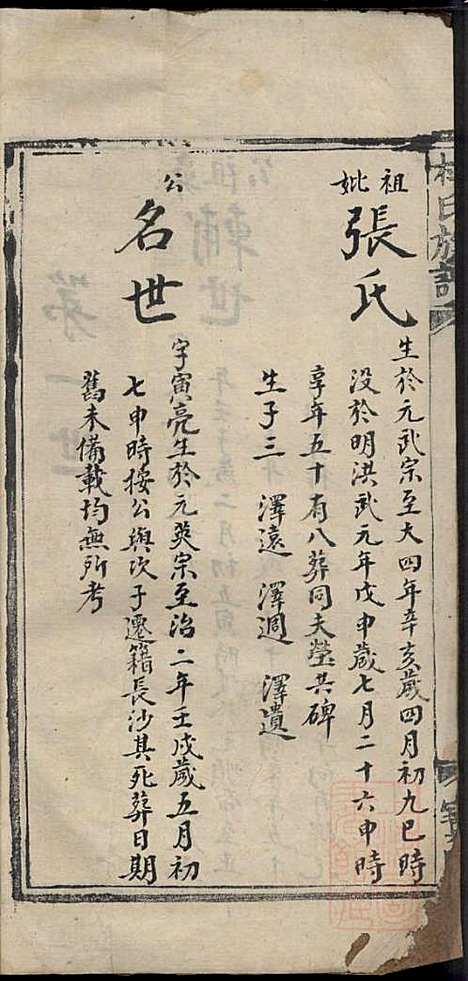 祖妣張氏
生於元武宗至大四年辛亥歲四月初九巳時
没於明洪武元年戊申歲七月二十六申時
享年五十有八葬同夫塋共碑
生子三 澤遠 澤週 澤遺
公名世
字寅亮生於元英宗至治二年壬戌歲五月初
七申時按公與次子遷籍長沙其死葬日期
舊未備載均無所考
氏族譜